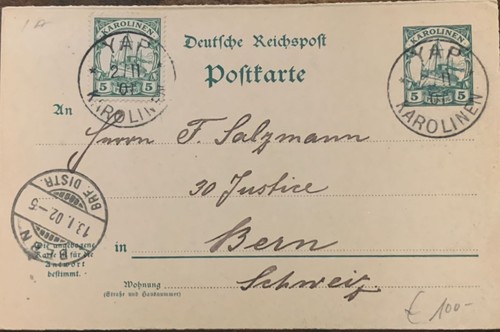 KAROLINEN
5 5
YAP
2 11
01
KAROLINEN
Deutsche Reichspost
Postkarte
KAROLINEN
5 5
YAP
11
01
KAROLINEN
An
Herrn F. Salzmann
30 Justice
in Bern
Schweiz
BRF. DISTR.
13.I.02-5
BERN
Die angebogene
Karte ist für die
Antwort
bestimmt.
Wohnung
(Straße und Hausnummer)
£ 100-